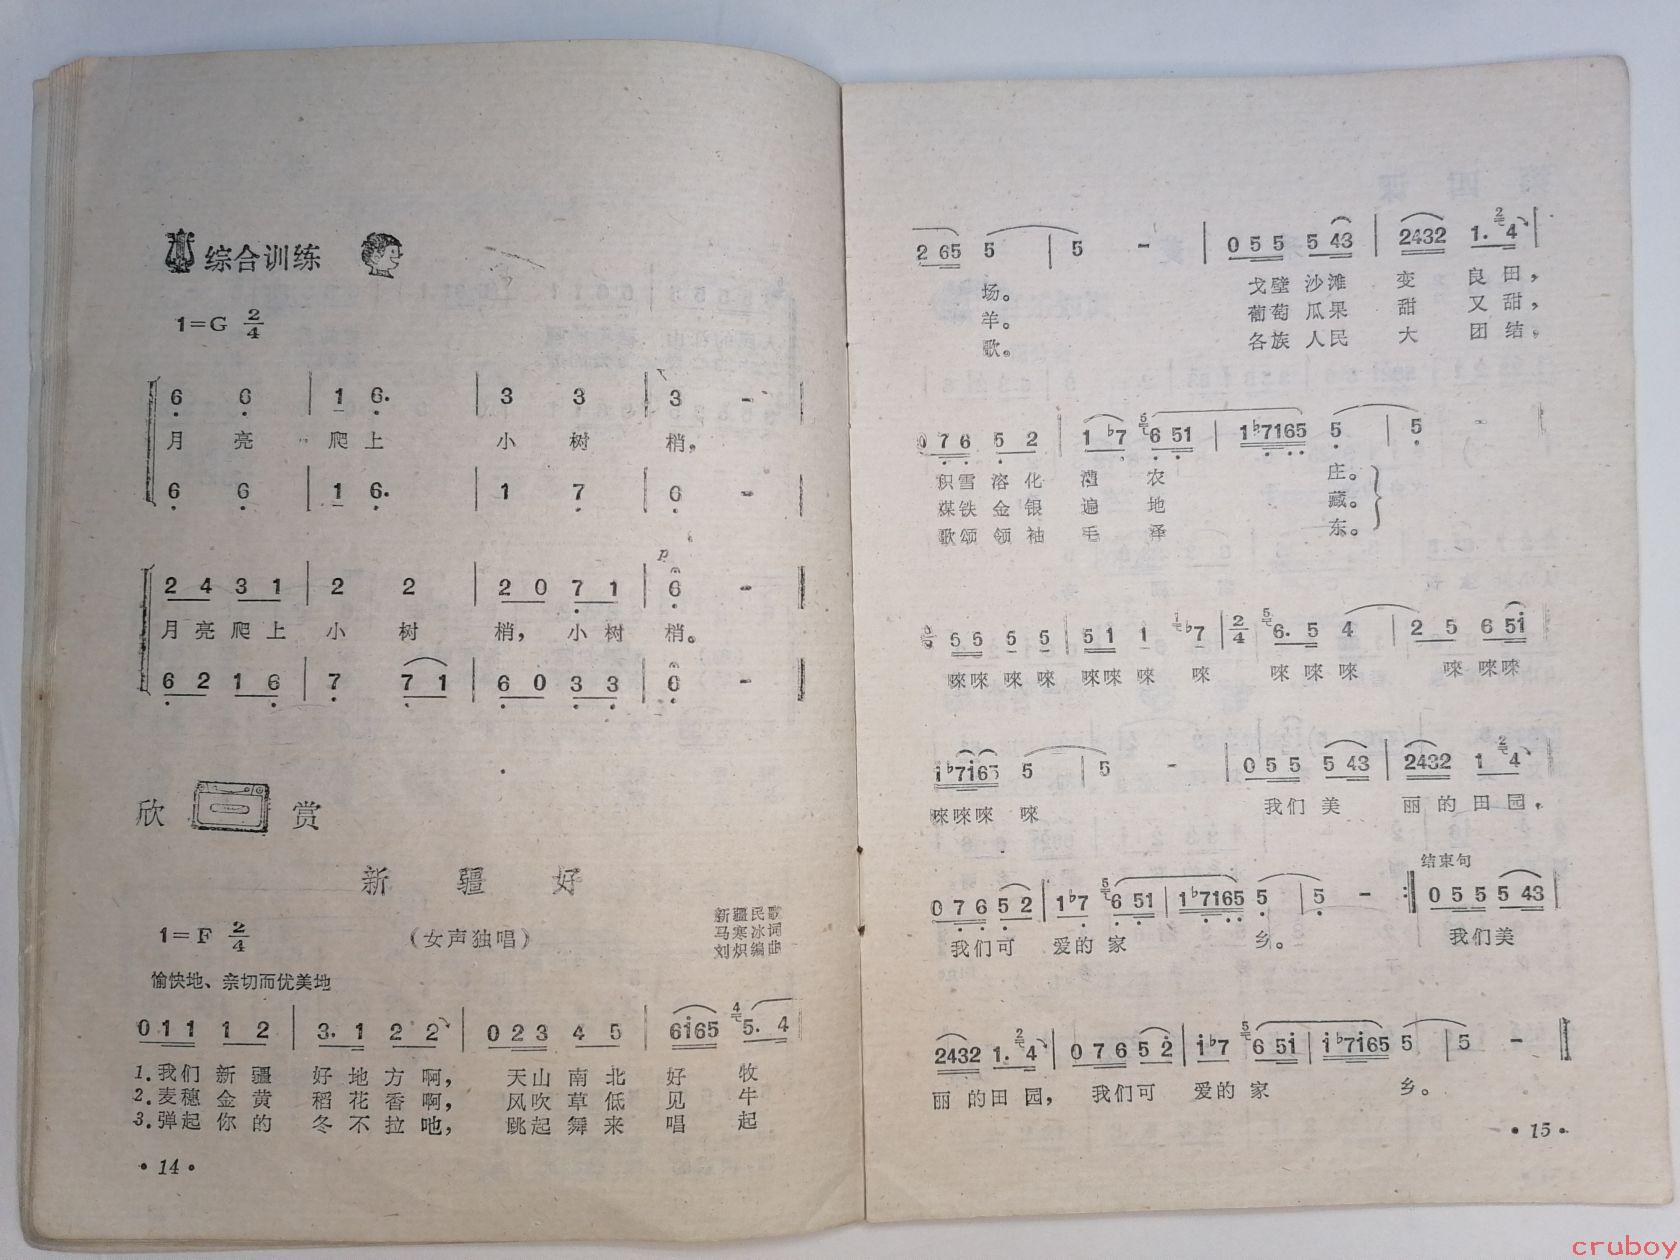 综合训练
1=G 2/4
6 6 | 1 6. | 3 3 | 3 -
月 亮 爬 上 小 树 梢，
6 6 | 1 6. | 1 7 | 6 -
p
2 4 3 1 | 2 2 | 2 0 7 1 | 6 -
月 亮 爬 上 小 树 梢， 小 树 梢。
6 2 1 6 | 7 7 1 | 6 0 3 3 | 6 -
欣 赏
新 疆 好
新疆民歌
1=F 2/4 （女声独唱） 马寒冰词
刘炽编曲
愉快地、亲切而优美地
0 1 1 1 2 | 3. 1 2 2 | 0 2 3 4 5 | 6i65 4 5. 4
1.我们 新 疆 好 地 方 啊， 天山 南 北 好 牧
2.麦穗 金 黄 稻 花 香 啊， 风吹 草 低 见 牛
3.弹起 你 的 冬 不 拉 吔， 跳起 舞 来 唱 起
·14·
2 65 5 | 5 - | 0 5 5 5 43 | 2432 1. 2 4 |
场。 戈壁 沙滩 变 良 田，
羊。 葡萄 瓜果 甜 又 甜，
歌。 各族 人民 大 团 结，
0 7 6 5 2 | 1 ♭7 5 6 51 | 1♭7165 5 | 5 -
积雪 溶 化 灌 农 庄。
煤铁 金 银 遍 地 藏。
歌颂 领 袖 毛 泽 东。
5 5 5 5 | 5 1 1 i ♭7 | 2/4 5 6. 5 4 | 2 5 6 5i
唻唻 唻 唻 唻唻 唻 唻 唻 唻 唻 唻 唻唻
i♭7i65 5 | 5 - | 0 5 5 5 43 | 2432 1 2 4 |
唻唻唻 唻 我们 美 丽 的 田 园，
结束句
0 7 6 5 2 | 1♭7 5 6 51 | 1♭7165 5 | 5 - :‖ 0 5 5 5 43 |
我们可 爱的 家 乡。 我们美
2432 1. 2 4 | 0 7 6 5 2 | i♭7 5 6 5i | i♭7i65 5 | 5 - ‖
丽 的田 园， 我们可 爱的 家 乡。
·15·
cruboy